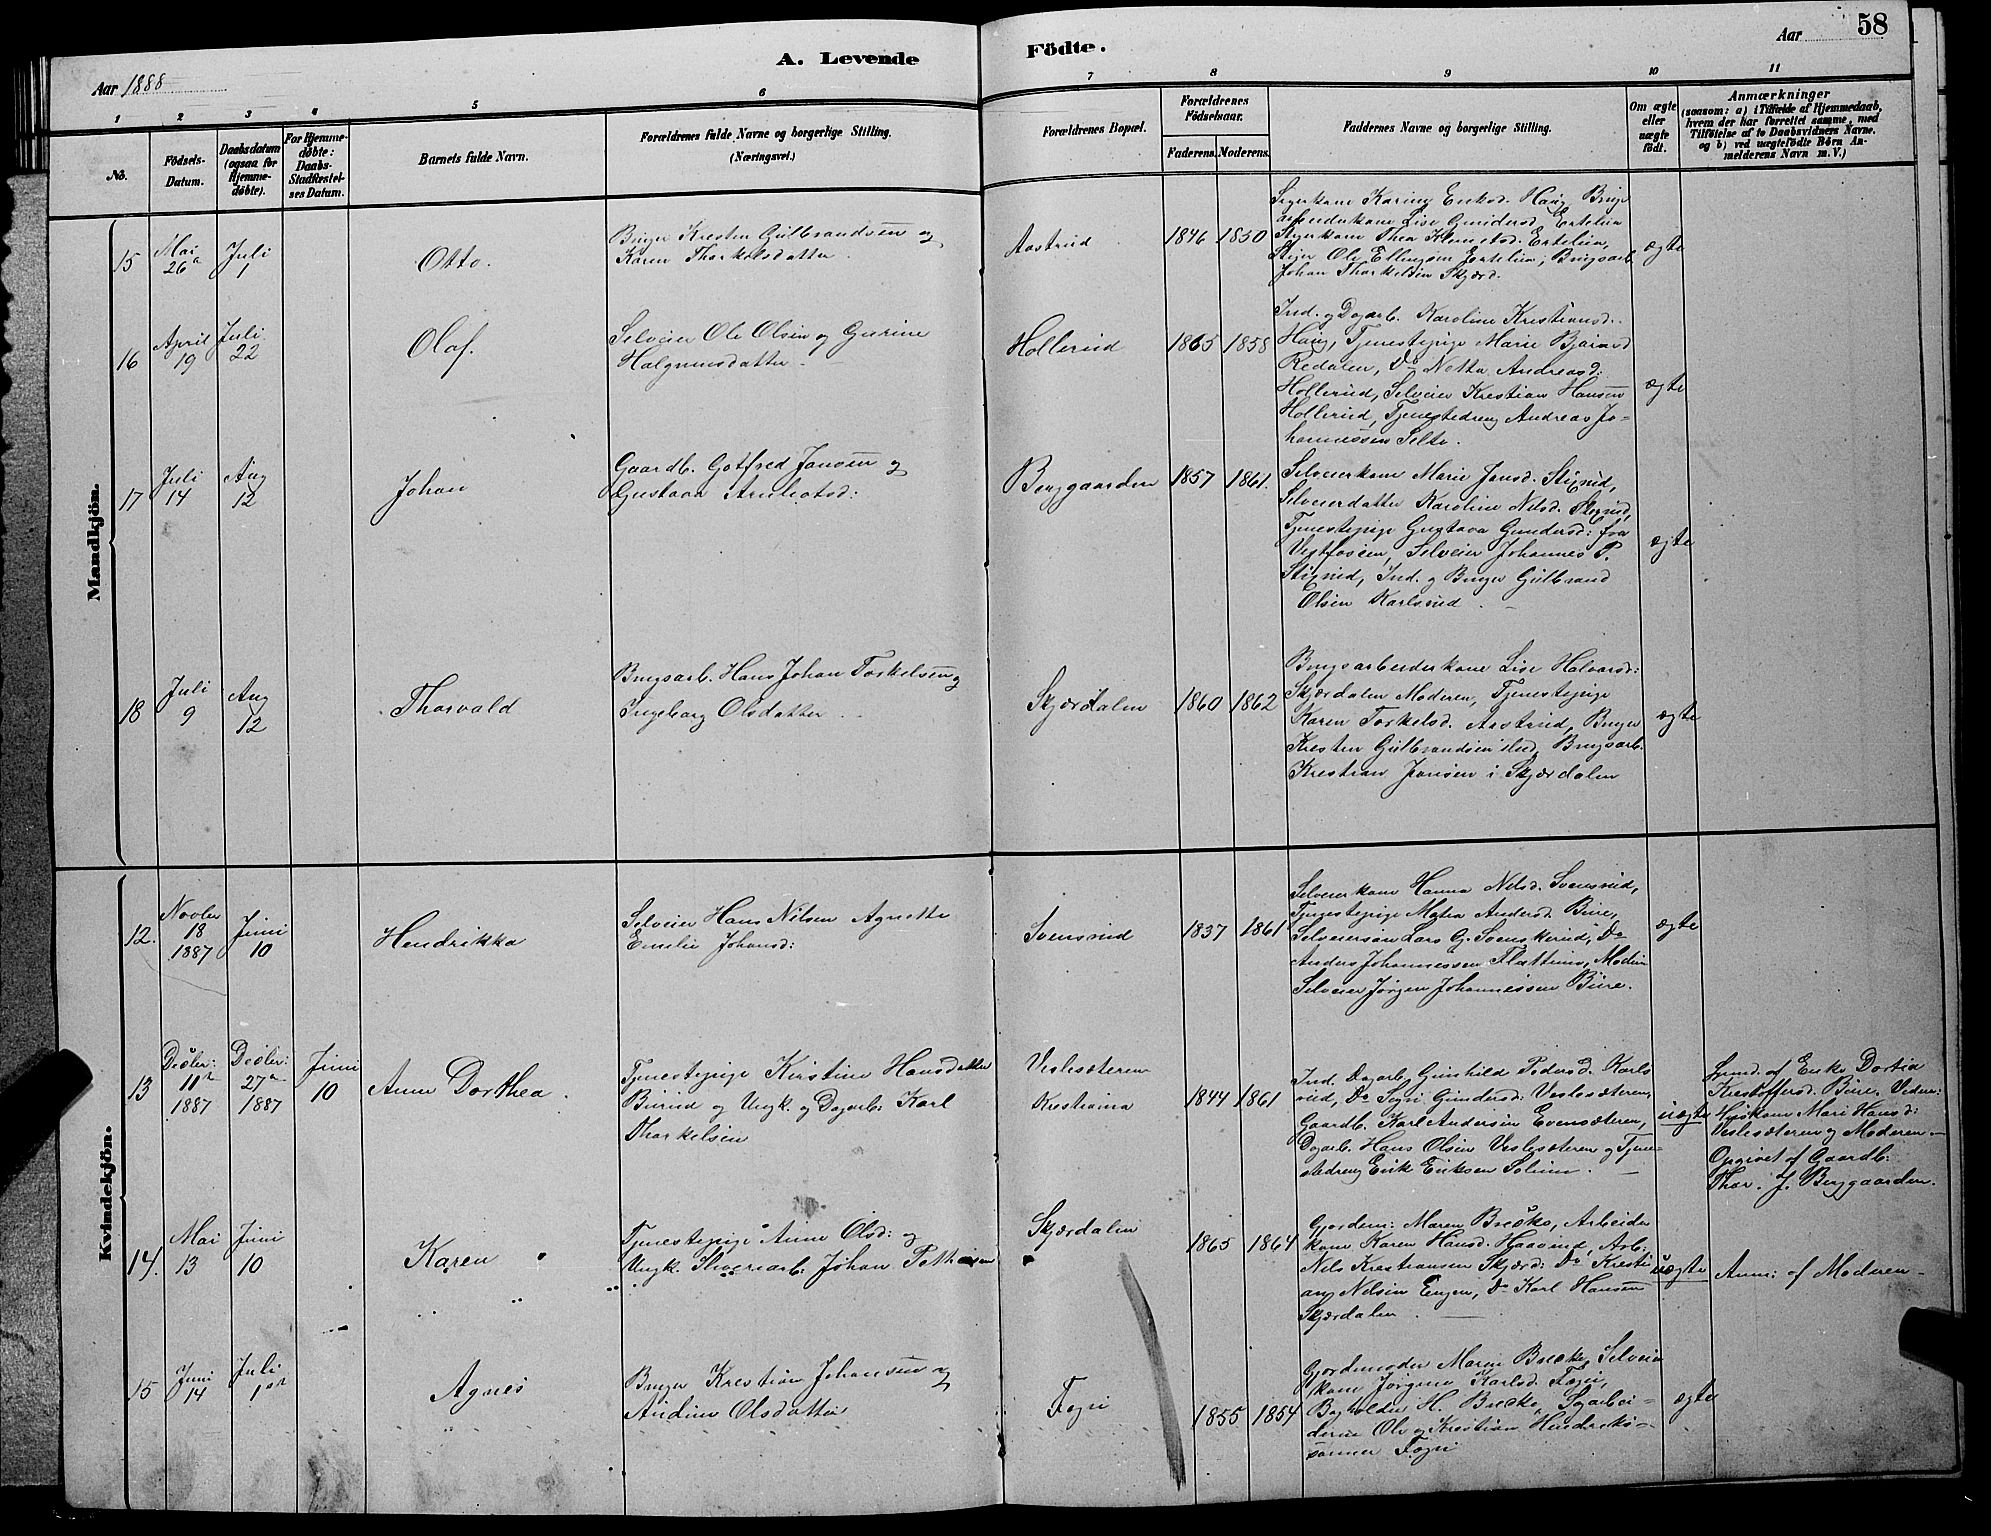 A. Levende
Födte.
Aar 58
Aar 1888
1 2 3 4 5 6 7 8 9 10 11
No.
Födsels-
Datum.
Daabsdatum
(ogsaa for
Hjemme-
döbte).
For Hjemme-
döbte:
Daabs-
Stadfæstel-
ses Datum.
Barnets fulde Navn.
Forældrenes fulde Navne og borgerlige Stilling.
(Næringsvei.)
Forældrenes Bopæl.
Forældrenes
Födselsaar.
Faderens. Moderens.
Faddernes Navne og borgerlige Stilling.
Om ægte
eller
uægte
födt.
Anmærkninger
(saasom: a) i Tilfælde af Hjemmedaab,
hvem der har forrettet samme, med
Tilföielse af to Daabsvidners Navne.
og b) ved uægtefödte Börn An-
melderens Navn m. V.)
Mandkjön.
15
Mai
26
Juli
1
Otto.
Bruger Kresten Gulbrandsen og
Karen Thorkelsdatter
Aastrud
1846 1850
Karine Eriksd. Haug
Lise Gundersd. Ertelien
Thea Ertelien,
Ole Ellingsen Ertelien, Brugsarb.
Johan Thorkelsen Skjærd.
ægte
16
April
19
Juli
22
Olaf.
Selveier Ole Olsen og Gurine
Halgrimsdatter
Hollerud
1865 1858
Ind. og Dagarb. Karoline Kristiansd.
Haug, Tjenestepige Marie
Redalen, Do Netta Andreasd.
Hollerud, Selveier Kristian Hansen
Hollerud, Tjenestedreng Andreas Jo-
hannessen Selte.
ægte
17
Juli
14
Aug
12
Johan
Gaardb. Gotfred Jansen og
Gustava
Berggaarden
1857 1861.
Selveierkone Marie Jansd. Stixrud,
Selveierdatter Karoline Nilsd. Stixrud,
Tjenestepige Gustava Gundersd: fra
Vestfossen, Selveier Johannes P.
Stixrud, Ind. og Bruger Gulbrand
Olsen Karlsrud.
ægte
18
Juli
9
Aug
12
Thorvald
Brugsarb. Hans Johan Torkelsen og
Ingeborg Olsdatter
Skjærdalen
1860 1862
Brugsarbeiderkone Lise Halvorsd:
Skjærdalen Moderen, Tjenestepige
Karen Torkelsd. Aastrud, Bruger
Kresten Gulbrandsen Brugsarb.
Krestian Jansen i Skjærdalen
ægte
Kvindekjön.
12.
Novber
18
1887
Juni
10
Hendrikka
Selveier Hans Nilsen Agnette
Emelie Johansd:
Svensrud
1837 1861
Selveierkone Hanna Nilsd. Svensrud,
Tjenestepige Matea Andersd. Bure,
Selveiersøn Lars G. Svenskerud, Do
Anders Johannessen Moderen
Selveier Jørgen Johannessen Bure.
ægte
13
Decber:
11te
1887
Decber:
27de
1887
Juni
10
Anne Dorthea
Tjenestepige Kirstine Hansdatter
Burud og Ungk. og Dagarb: Karl
Thorkelsen
Veslesæteren
Krestiania
1844 1861
Ind. Dagarb. Gunhild Pedersd. Karls
rud, Do Gundersd: Veslesæteren,
Gaardb. Karl Andersen Evensæteren,
Dagarb. Hans Olsen Veslesæteren og Tjene-
stedreng Erik Eriksen Solum.
uægte
af Enke Dortea
Kristoffersd. Bure.
Mari Hansd:
Veslesæteren og Moderen.
Opgivet af Gaardb:
Thor. J. Berggaarden.
14.
Mai
13
Juni
10
Karen
Tjenestepige Anne Olsd: og
Ungk. Johan
Skjærdalen
1865 1864
Gjordem: Maren Breske, Arbeider
kone Karen Hansd. Haavind, Arb:
Nils Kristiansen Skjærd: Do Kristi
an Nilsen Engen, Do Karl Hansen
Skjærdalen.
uægte
Anm: af Moderen
15
Juni
14
Juli
1ste
Agnes
Bruger Krestian Johansen og
Andine Olsdatter
Fegri
1855 1854
Gjordemoder Maren Breske, Selveier
kone Jørgine Karlsd. Fegri,
Bogholder H. Breske, Sagarbei-
derne Ole og Kristian Hendriks-
sønner Fegri
ægte